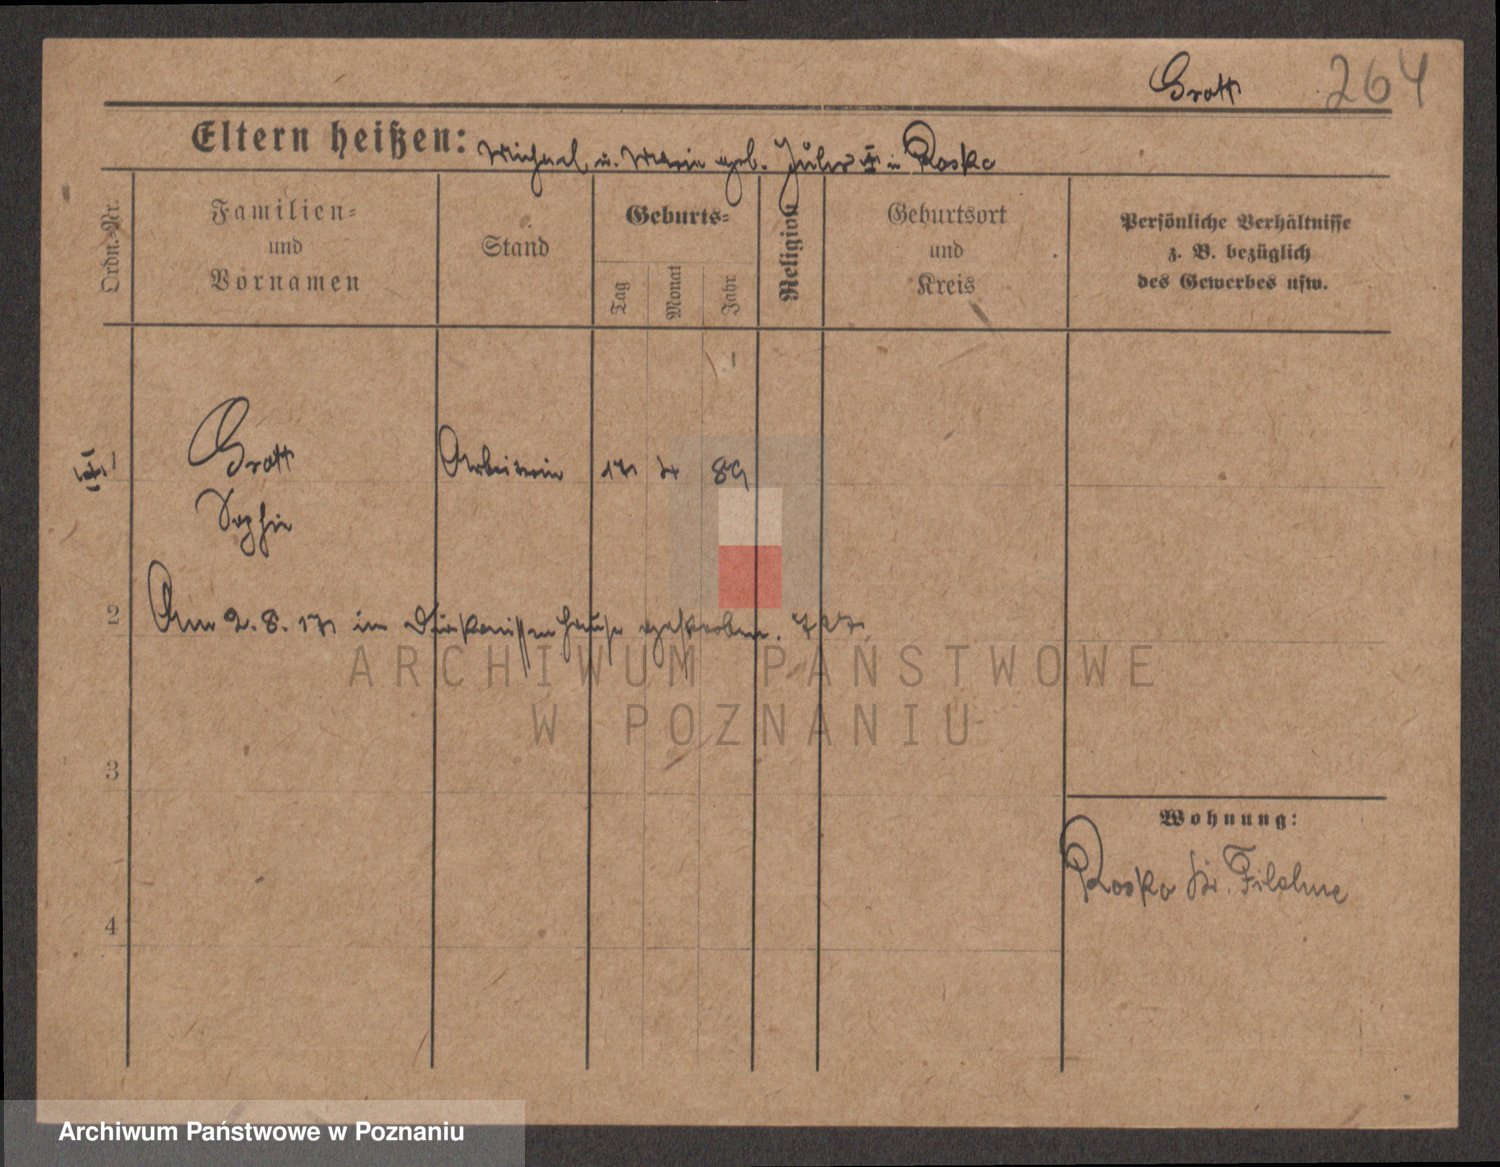 Grott 264
Eltern heißen: Michael u. Marie geb. in Rosko
Ordn.-Nr.
Familien-
und
Vornamen
Stand
Geburts-
Tag
Monat
Jahr
Religion
Geburtsort
und
Kreis
Persönliche Verhältnisse
z. B. bezüglich
des Gewerbes usw.
1 Grott Arbeiterin 17 4 89
Sophie
2 Am 2. 8. 17 im Diakonissenhause gestorben.
3
4
Wohnung:
Rosko Kr. Filehne
ARCHIWUM PAŃSTWOWE
W POZNANIU
Archiwum Państwowe w Poznaniu